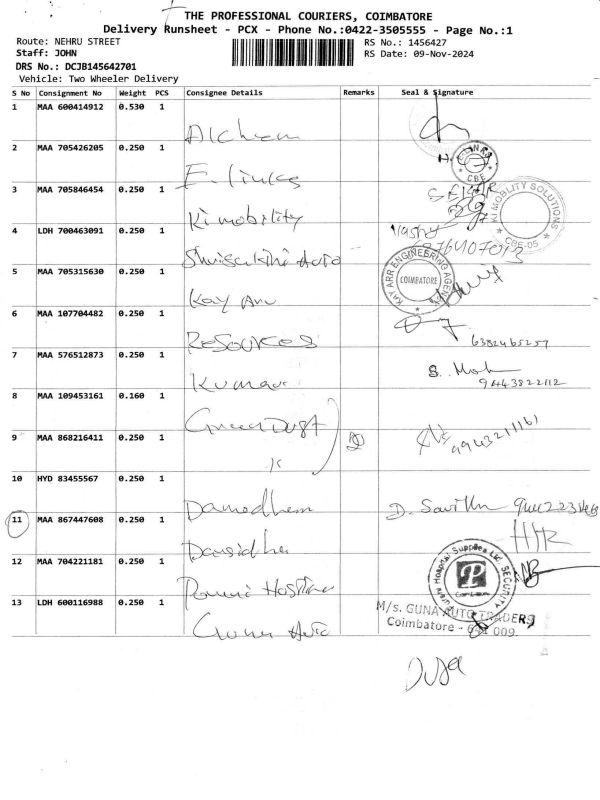 THE PROFESSIONAL COURIERS, COIMBATORE
Delivery Runsheet - PCX - Phone No.:0422-3505555 - Page No.:1
Route: NEHRU STREET
RS No.: 1456427
Staff: JOHN
RS Date: 09-Nov-2024
DRS No.: DCJB145642701
Vehicle: Two Wheeler Delivery
S No Consignment No Weight PCS Consignee Details Remarks Seal & Signature
1 MAA 600414912 0.530 1
Alchem
2 MAA 705426205 0.250 1
CBE
E. links
3 MAA 705846454 0.250 1
KI MOBLITY SOLUTIONS
CBE-05
Ki mobility
4 LDH 700463091 0.250 1
Auto
KAY ARR ENGINEERING AGENCY
COIMBATORE
5 MAA 705315630 0.250 1
Kay Arr
6 MAA 107704482 0.250 1
Resources
6382465257
7 MAA 576512873 0.250 1
Kumar
S. Moh
9443822112
8 MAA 109453161 0.160 1
Green Dust
9943211161
9 MAA 868216411 0.250 1
10 HYD 83455567 0.250 1
Damodhern
D.
11 MAA 867447608 0.250 1
12 MAA 704221181 0.250 1
Hospital Supplies Ltd. SECURITY
P
13 LDH 600116988 0.250 1
M/s. GUNA AUTO TRADERS
Coimbatore - 641 009.
Guna Auto